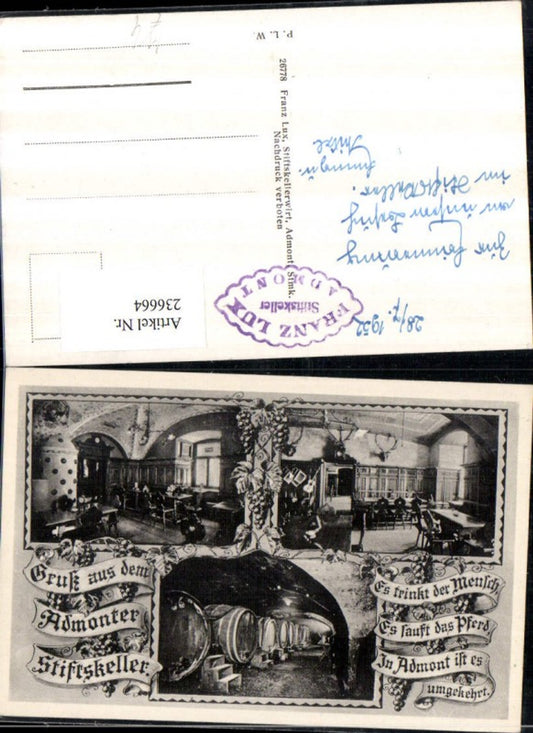 P. L. W.
26778 Franz Lux, Stiftskellerwirt, Admont, Stmk.
Nachdruck verboten
28/7. 1952
Zur Erinnerung
an unseren
im Stiftskeller.
Artikel Nr.
236664
FRANZ LUX
Stiftskeller
ADMONT
Gruß aus dem
Admonter
Stiftskeller
Es trinkt der Mensch,
Es sauft das Pferd
In Admont ist es
umgekehrt.